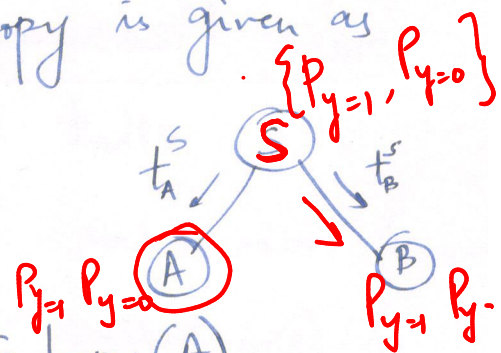 opy is given as
{P_{y=1}, P_{y=0}}
S
t_A^S t_B^S
A B
P_{y=1} P_{y=0} P_{y=1} P_{y-
(A)